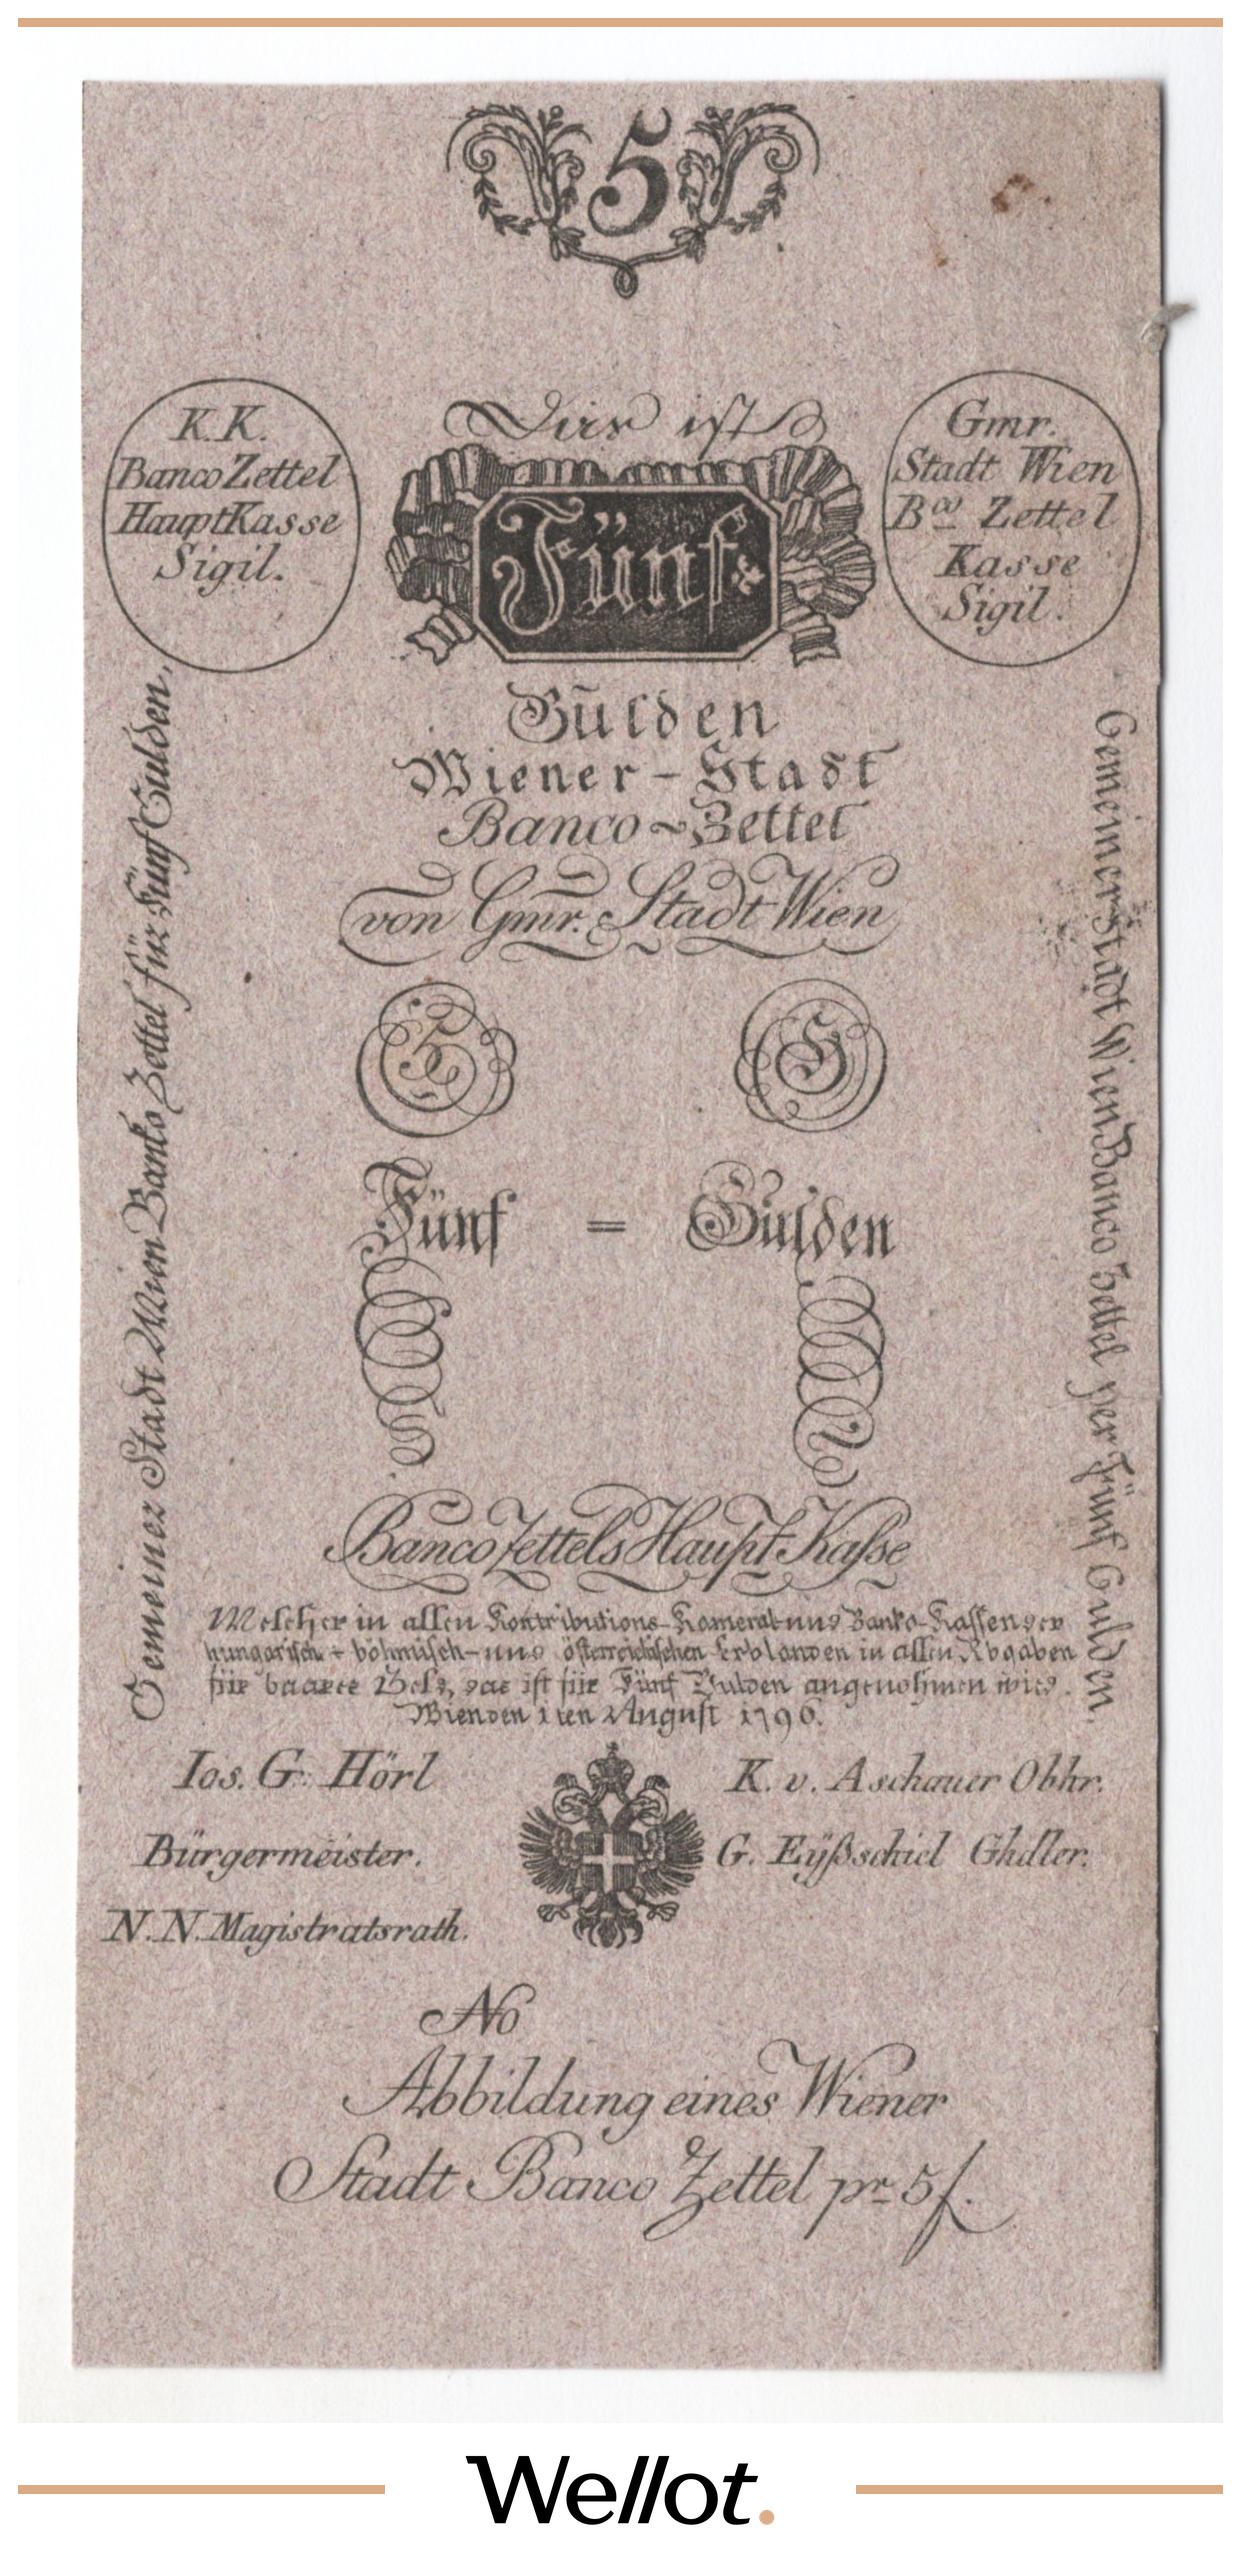 5
Dies ist
K.K.
Banco Zettel
HauptKasse
Sigil.
Fünf
Gmr.
Stadt Wien
Bco Zettel
Kasse
Sigil.
Gulden
Wiener-Stadt
Banco~Zettel
von Gmr. Stadt Wien
Gemeiner Stadt Wien Banko Zettel für Fünf Gulden,
Gemeiner Stadt Wien Banco Zettel per Fünf Gulden.
Fünf = Gulden
Banco Zettels Haupt Kasse
Welcher in allen Kontributions-Kameral-und Banko-Kassen der
hungarisch-böhmisch-und österreichischen Erblanden in allen Abgaben
für baares Geld, das ist für Fünf Gulden angenohmen wird.
Wien den 1ten August 1796.
Ios. G. Hörl
Bürgermeister.
N.N. Magistratsrath.
K. v. Aschauer Obhr.
G. Eÿßschiel Ghdler.
No
Abbildung eines Wiener
Stadt Banco Zettel pr 5f.
Wellot.